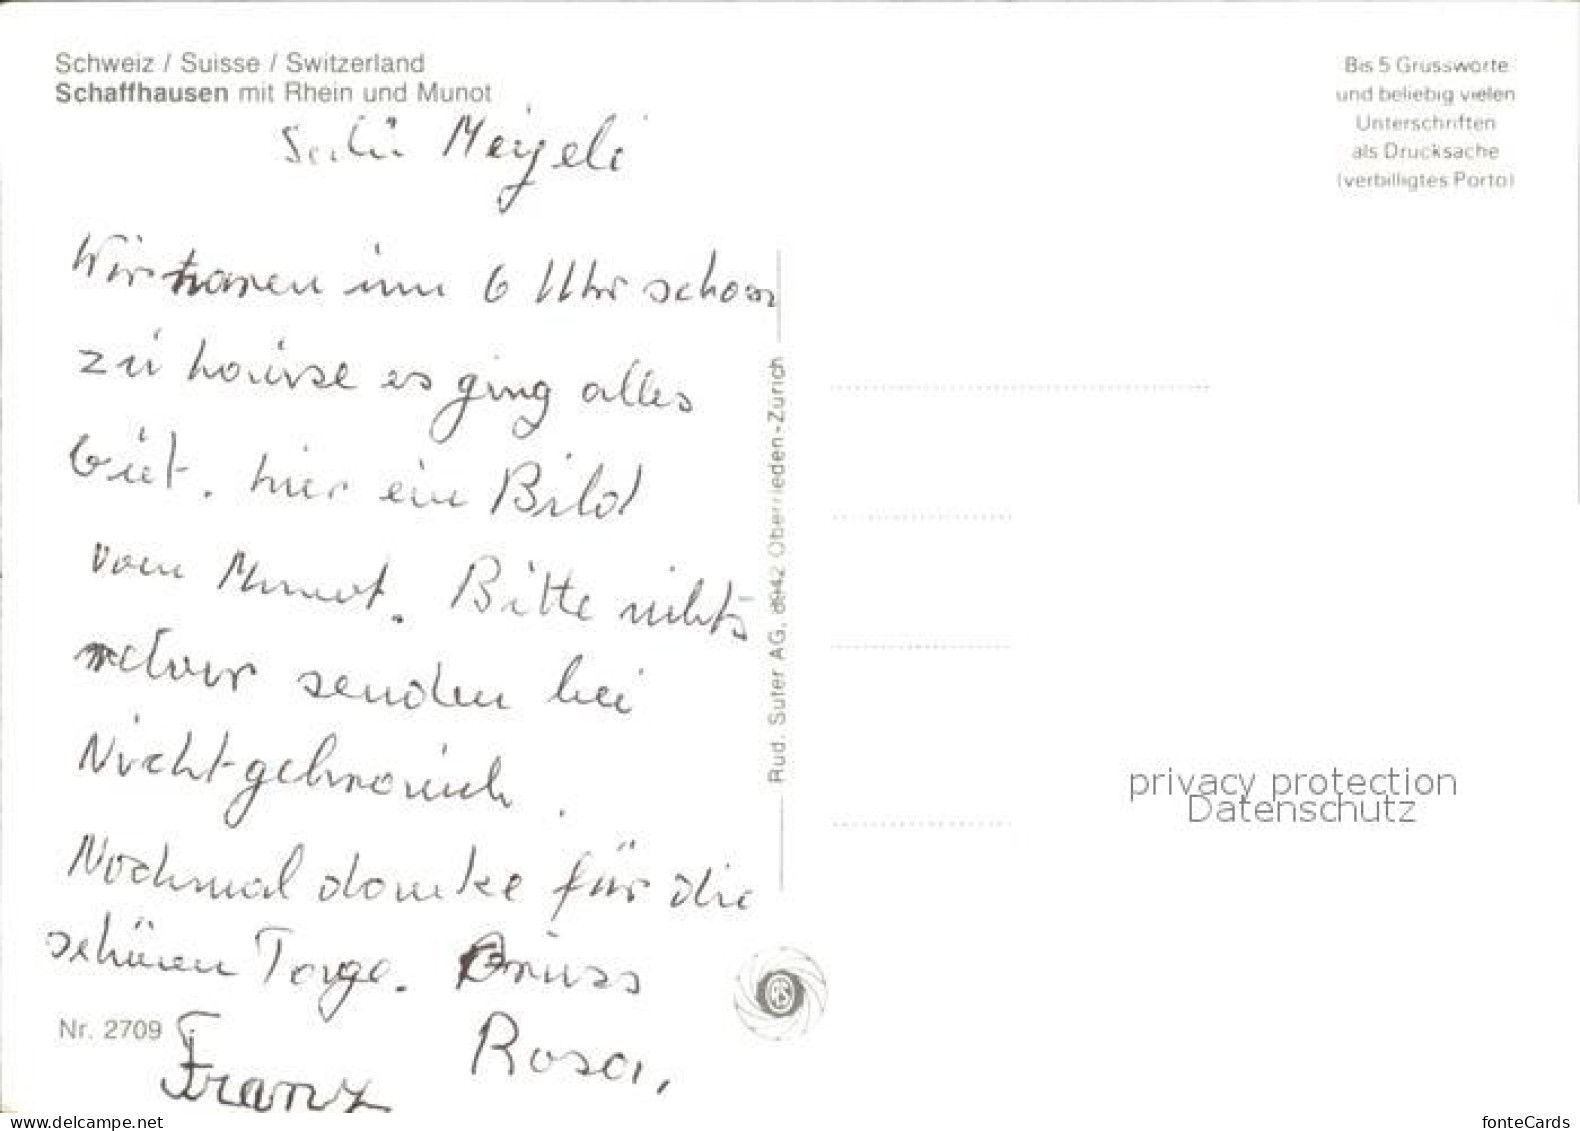 Schweiz / Suisse / Switzerland
Schaffhausen mit Rhein und Munot
Bis 5 Grussworte
und beliebig vielen
Unterschriften
als Drucksache
(verbilligtes Porto)
Salü Meijeli
Wir waren um 6 Uhr schon
zu hause es ging alles
Gut. hier ein Bild
vom Munot. Bitte nichts
retour senden bei
Nichtgebrauch.
Nochmal danke für die
schönen Tage. Gruss
Rosa,
Franz
Nr. 2709
Rud. Suter AG, 8942 Oberrieden-Zürich
RS
privacy protection
Datenschutz
www.delcampe.net
fonteCards